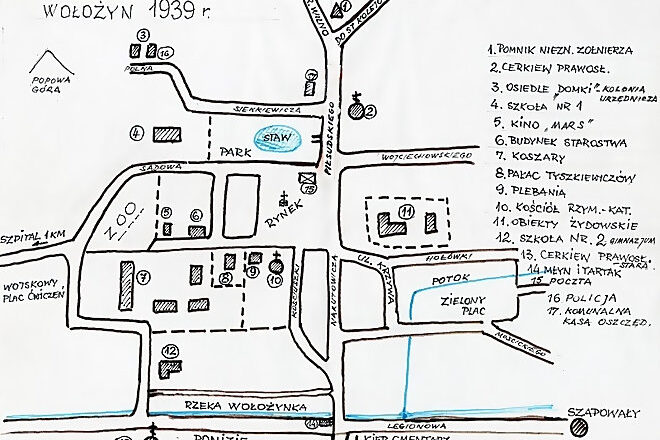 WOŁOŻYN 1939 r.
WILNO
DO ST KOLEJO
1
3
16
POLNA
POPOWA
GÓRA
17
SIENKIEWICZA
2
4
STAW
PARK
PIŁSUDSKIEGO
WOJCIECHOWSKIEGO
SADOWA
15
RYNEK
ZOO
5
6
11
SZPITAL 1 KM
WOJSKOWY
PLAC ĆWICZEŃ
7
8
9
10
KOŚCIUSZKI
NARUTOWICZA
UL. KRZYWA
HOŁÓWKI
POTOK
ZIELONY
PLAC
MOŚCICKIEGO
12
RZEKA WOŁOŻYNKA
14
LEGIONOWA
SZAPOWAŁY
PONIŻIE
KIER CMENTARY
1. POMNIK NIEZN. ŻOŁNIERZA
2. CERKIEW PRAWOSŁ.
3. OSIEDLE „DOMKI" - KOLONIA
URZĘDNICZA
4. SZKOŁA NR 1
5. KINO „MARS"
6. BUDYNEK STAROSTWA
7. KOSZARY
8. PAŁAC TYSZKIEWICZÓW
9. PLEBANIA
10. KOŚCIÓŁ RZYM.-KAT.
11. OBIEKTY ŻYDOWSKIE
12. SZKOŁA NR. 2 GIMNAZJUM
13. CERKIEW PRAWOSŁ.
STARA
14 MŁYN I TARTAK
15 POCZTA
16 POLICJA
17. KOMUNALNA
KASA OSZCZĘD.